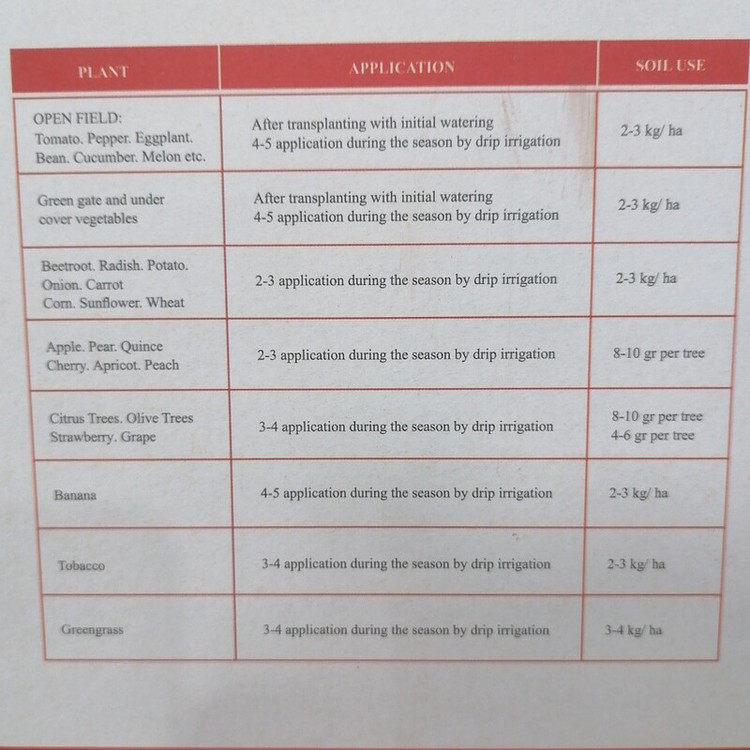 PLANT APPLICATION SOIL USE
OPEN FIELD:
Tomato. Pepper. Eggplant.
Bean. Cucumber. Melon etc.
After transplanting with initial watering
4-5 application during the season by drip irrigation
2-3 kg/ ha
Green gate and under
cover vegetables
After transplanting with initial watering
4-5 application during the season by drip irrigation
2-3 kg/ ha
Beetroot. Radish. Potato.
Onion. Carrot
Corn. Sunflower. Wheat
2-3 application during the season by drip irrigation
2-3 kg/ ha
Apple. Pear. Quince
Cherry. Apricot. Peach
2-3 application during the season by drip irrigation
8-10 gr per tree
Citrus Trees. Olive Trees
Strawberry. Grape
3-4 application during the season by drip irrigation
8-10 gr per tree
4-6 gr per tree
Banana
4-5 application during the season by drip irrigation
2-3 kg/ ha
Tobacco
3-4 application during the season by drip irrigation
2-3 kg/ ha
Greengrass
3-4 application during the season by drip irrigation
3-4 kg/ ha